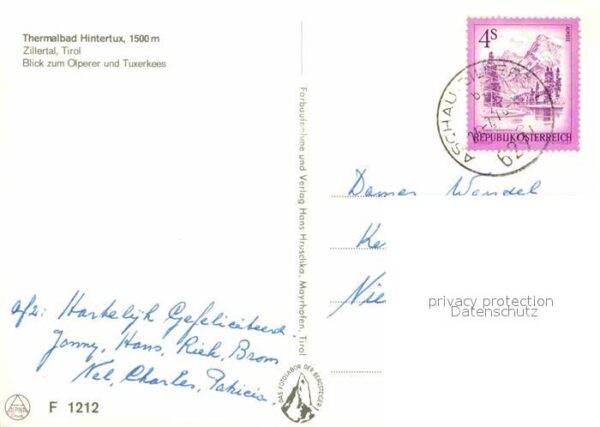 Thermalbad Hintertux, 1500 m
Zillertal, Tirol
Blick zum Olperer und Tuxerkees
4S
ALMSEE
REPUBLIK ÖSTERREICH
ASCHAU
Farbaufnahme und Verlag Hans Hruschka, Mayrhofen, Tirol
Dames Wandel
Ke
Nie
privacy protection
Datenschutz
afz: Hartelijk Gefeliciteerd.
Jonny, Hans, Riek, Brom
Nel, Charles, Patricia,
DAS FOTOLABOR DER BERGSTEIGER
F 1212